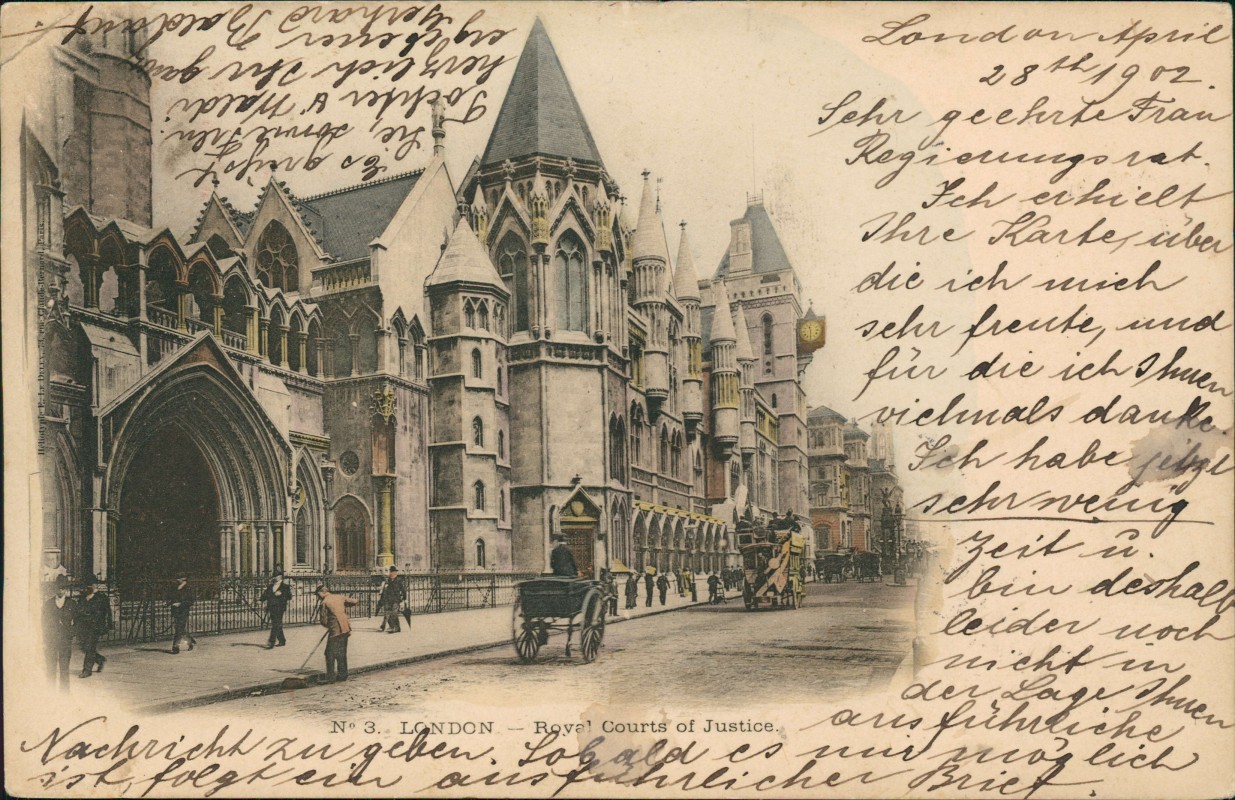 London April
28th 1902.
Sehr geehrte Frau
Regierungsrat.
Ich erhielt
Ihre Karte, über
die ich mich
sehr freute, und
für die ich Ihnen
vielmals danke.
Ich habe jetzt
sehr wenig
Zeit u.
bin deshalb
leider noch
nicht in
der Lage Ihnen
ausführliche
Nachricht zu geben. Sobald es mir möglich
ist, folgt ein ausführlicher Brief.
Es grüßt
Sie, sowie Frln.
Tochter &
herzlich Ihr ganz
ergebener
Gerhard
No 3. LONDON – Royal Courts of Justice.